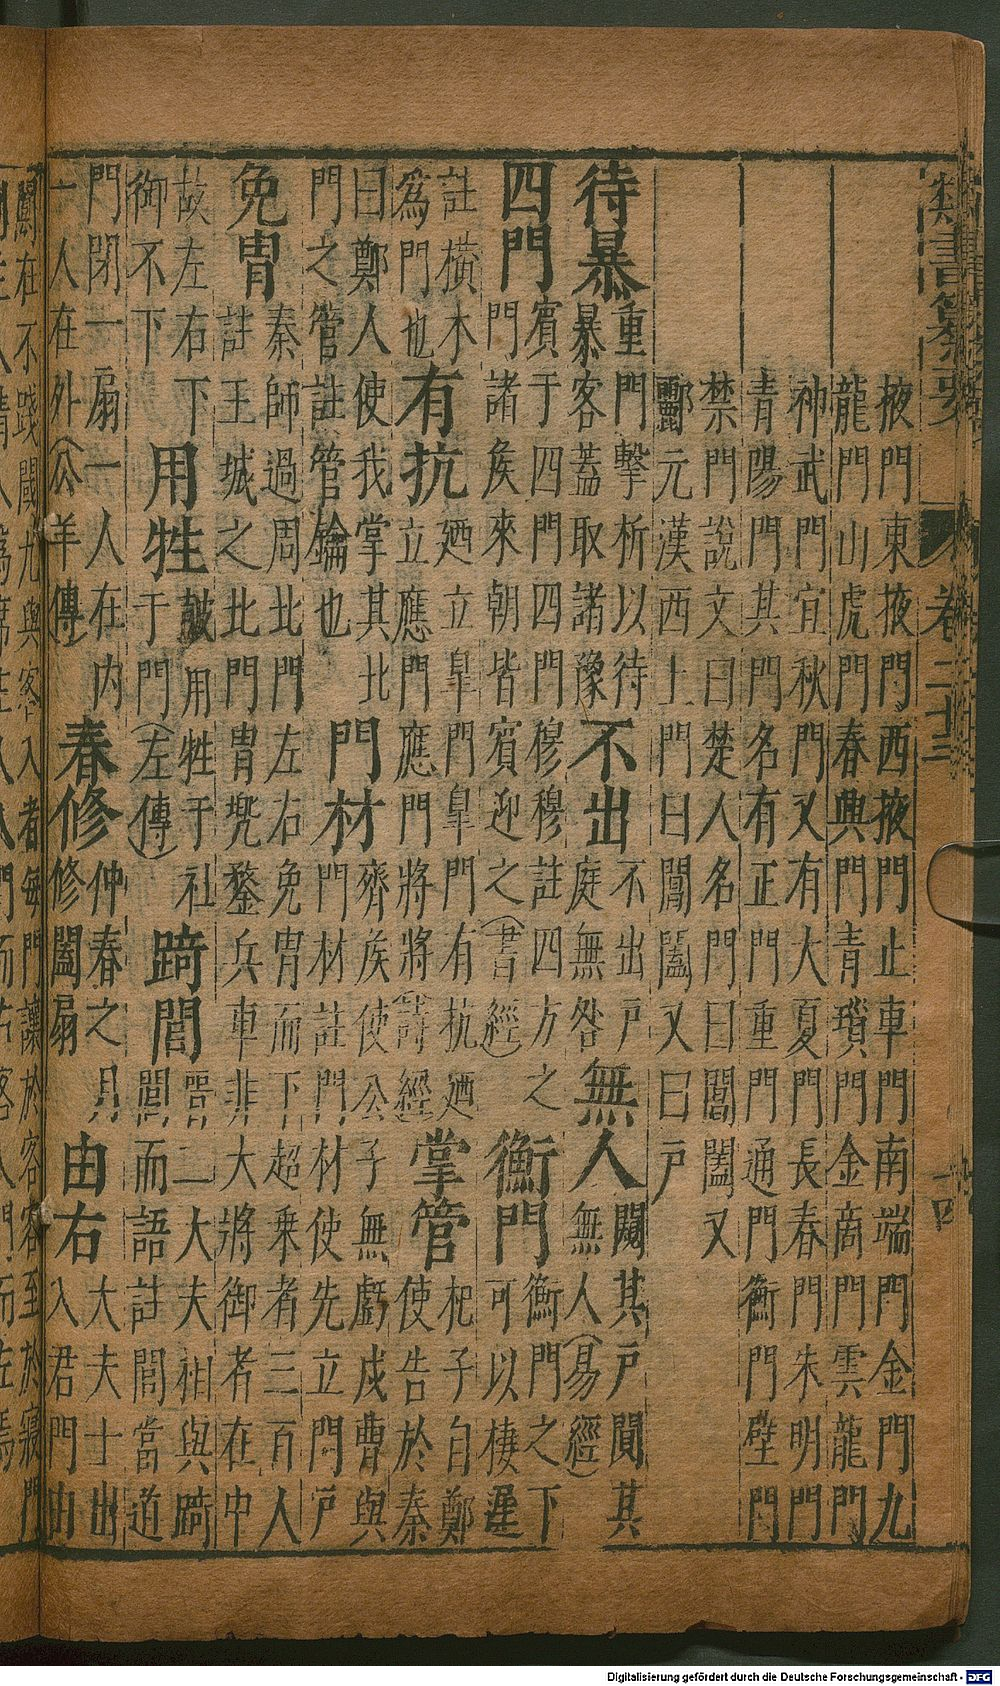 類書纂要 卷二十三 十四
掖門東掖門西掖門止車門南端門金門九
龍門山虎門春興門青瑣門金商門雲龍門
神武門宜秋門又有大夏門長春門朱明門
青陽門其門名有正門重門通門衡門壁門
禁門說文曰楚人名門曰閶闔又
酈元漢西土門曰閶闔又曰戶
待暴 重門擊析以待暴客蓋取諸豫 不出 不出戶庭無咎 無人 其戶闃其無人(易經)
四門 賓于四門四門穆穆註四方之門諸矦來朝皆賓迎之(書經) 衡門 衡門之下可以棲遲
註橫木為門也 有抗 廼立皐門皐門有抗廼立應門應門將將(詩經) 掌管 杞子自鄭使告於秦
曰鄭人使我掌其北門之管註管鑰也 門材 齊矦使公子無虧戍曹與門材註門材使先立門戶
免冑 秦師過周北門左右免冑而下超乘者三百人註王城之北門冑兠鍪兵車非大將御者在中
故左右下御不下 用牲 皷用牲于社于門(左傳) 踦閭 二大夫相與踦閭而語註閭當道
門閉一扇一人在内一人在外(公羊傳) 春修 仲春之月修闔扇 由右 大夫士出入君門由
闑在不踐閾凡與客入者每門讓於客客至於寢門
Digitalisierung gefördert durch die Deutsche Forschungsgemeinschaft - DFG